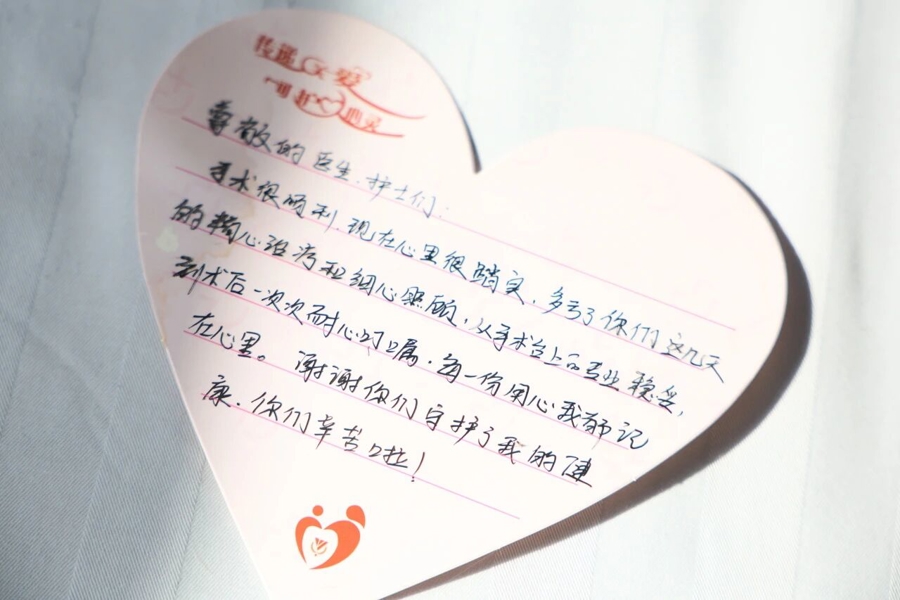 传递关爱
呵护心灵
尊敬的医生、护士们:
手术很顺利,现在心里很踏实,多亏了你们这几天
的精心治疗和细心照顾,从手术台上的专业稳妥,
到术后一次次耐心叮嘱,每一份用心我都记
在心里。谢谢你们守护了我的健
康,你们辛苦啦!